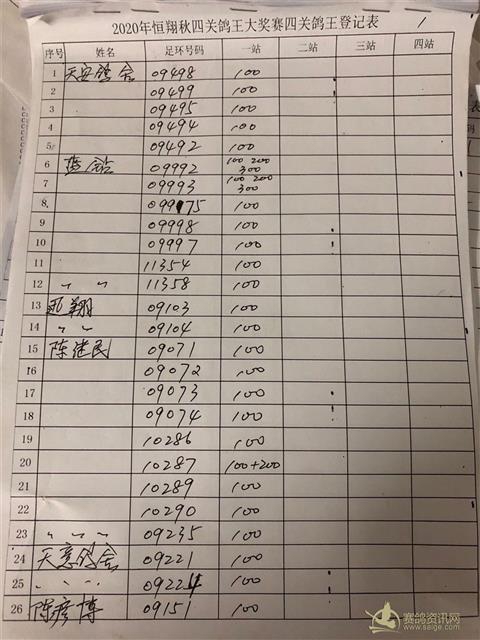 2020年恒翔秋四关鸽王大奖赛四关鸽王登记表 1
序号 姓名 足环号码 一站 二站 三站 四站
1 天安鸽舍 09498 100
2 09499 100
3 09495 100
4 09494 100
5 09492 100
6 09992 100 200 300
7 09993 100 200 300
8 09975 100
9 09998 100
10 09997 100
11 11354 100
12 〃 〃 11358 100
13 翔 09103 100
14 〃 〃 09104 100
15 陈建民 09071 100
16 09072 100
17 09073 100
18 09074 100
19 10286 100
20 10287 100+200
21 10289 100
22 10290 100
23 〃 〃 〃 09235 100
24 天意鸽舍 09221 100
25 〃 〃 〃 09224 100
26 陈彦博 09151 100
赛鸽资讯网
www.saige.com